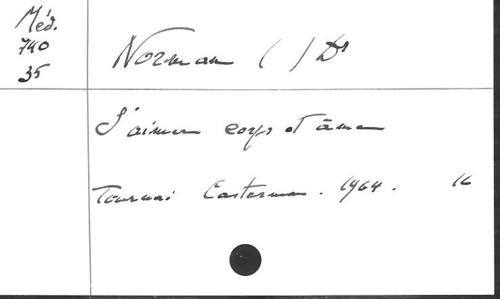 Méd.
740
35
Norman ( ) Dr
S'aimer corps et âme
Tournai Casterman. 1964. 16